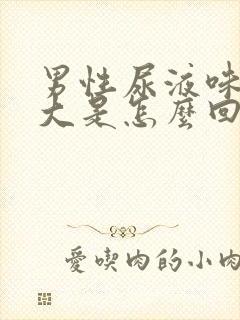 男性尿液味
大是怎麼回
愛喫肉的小肉